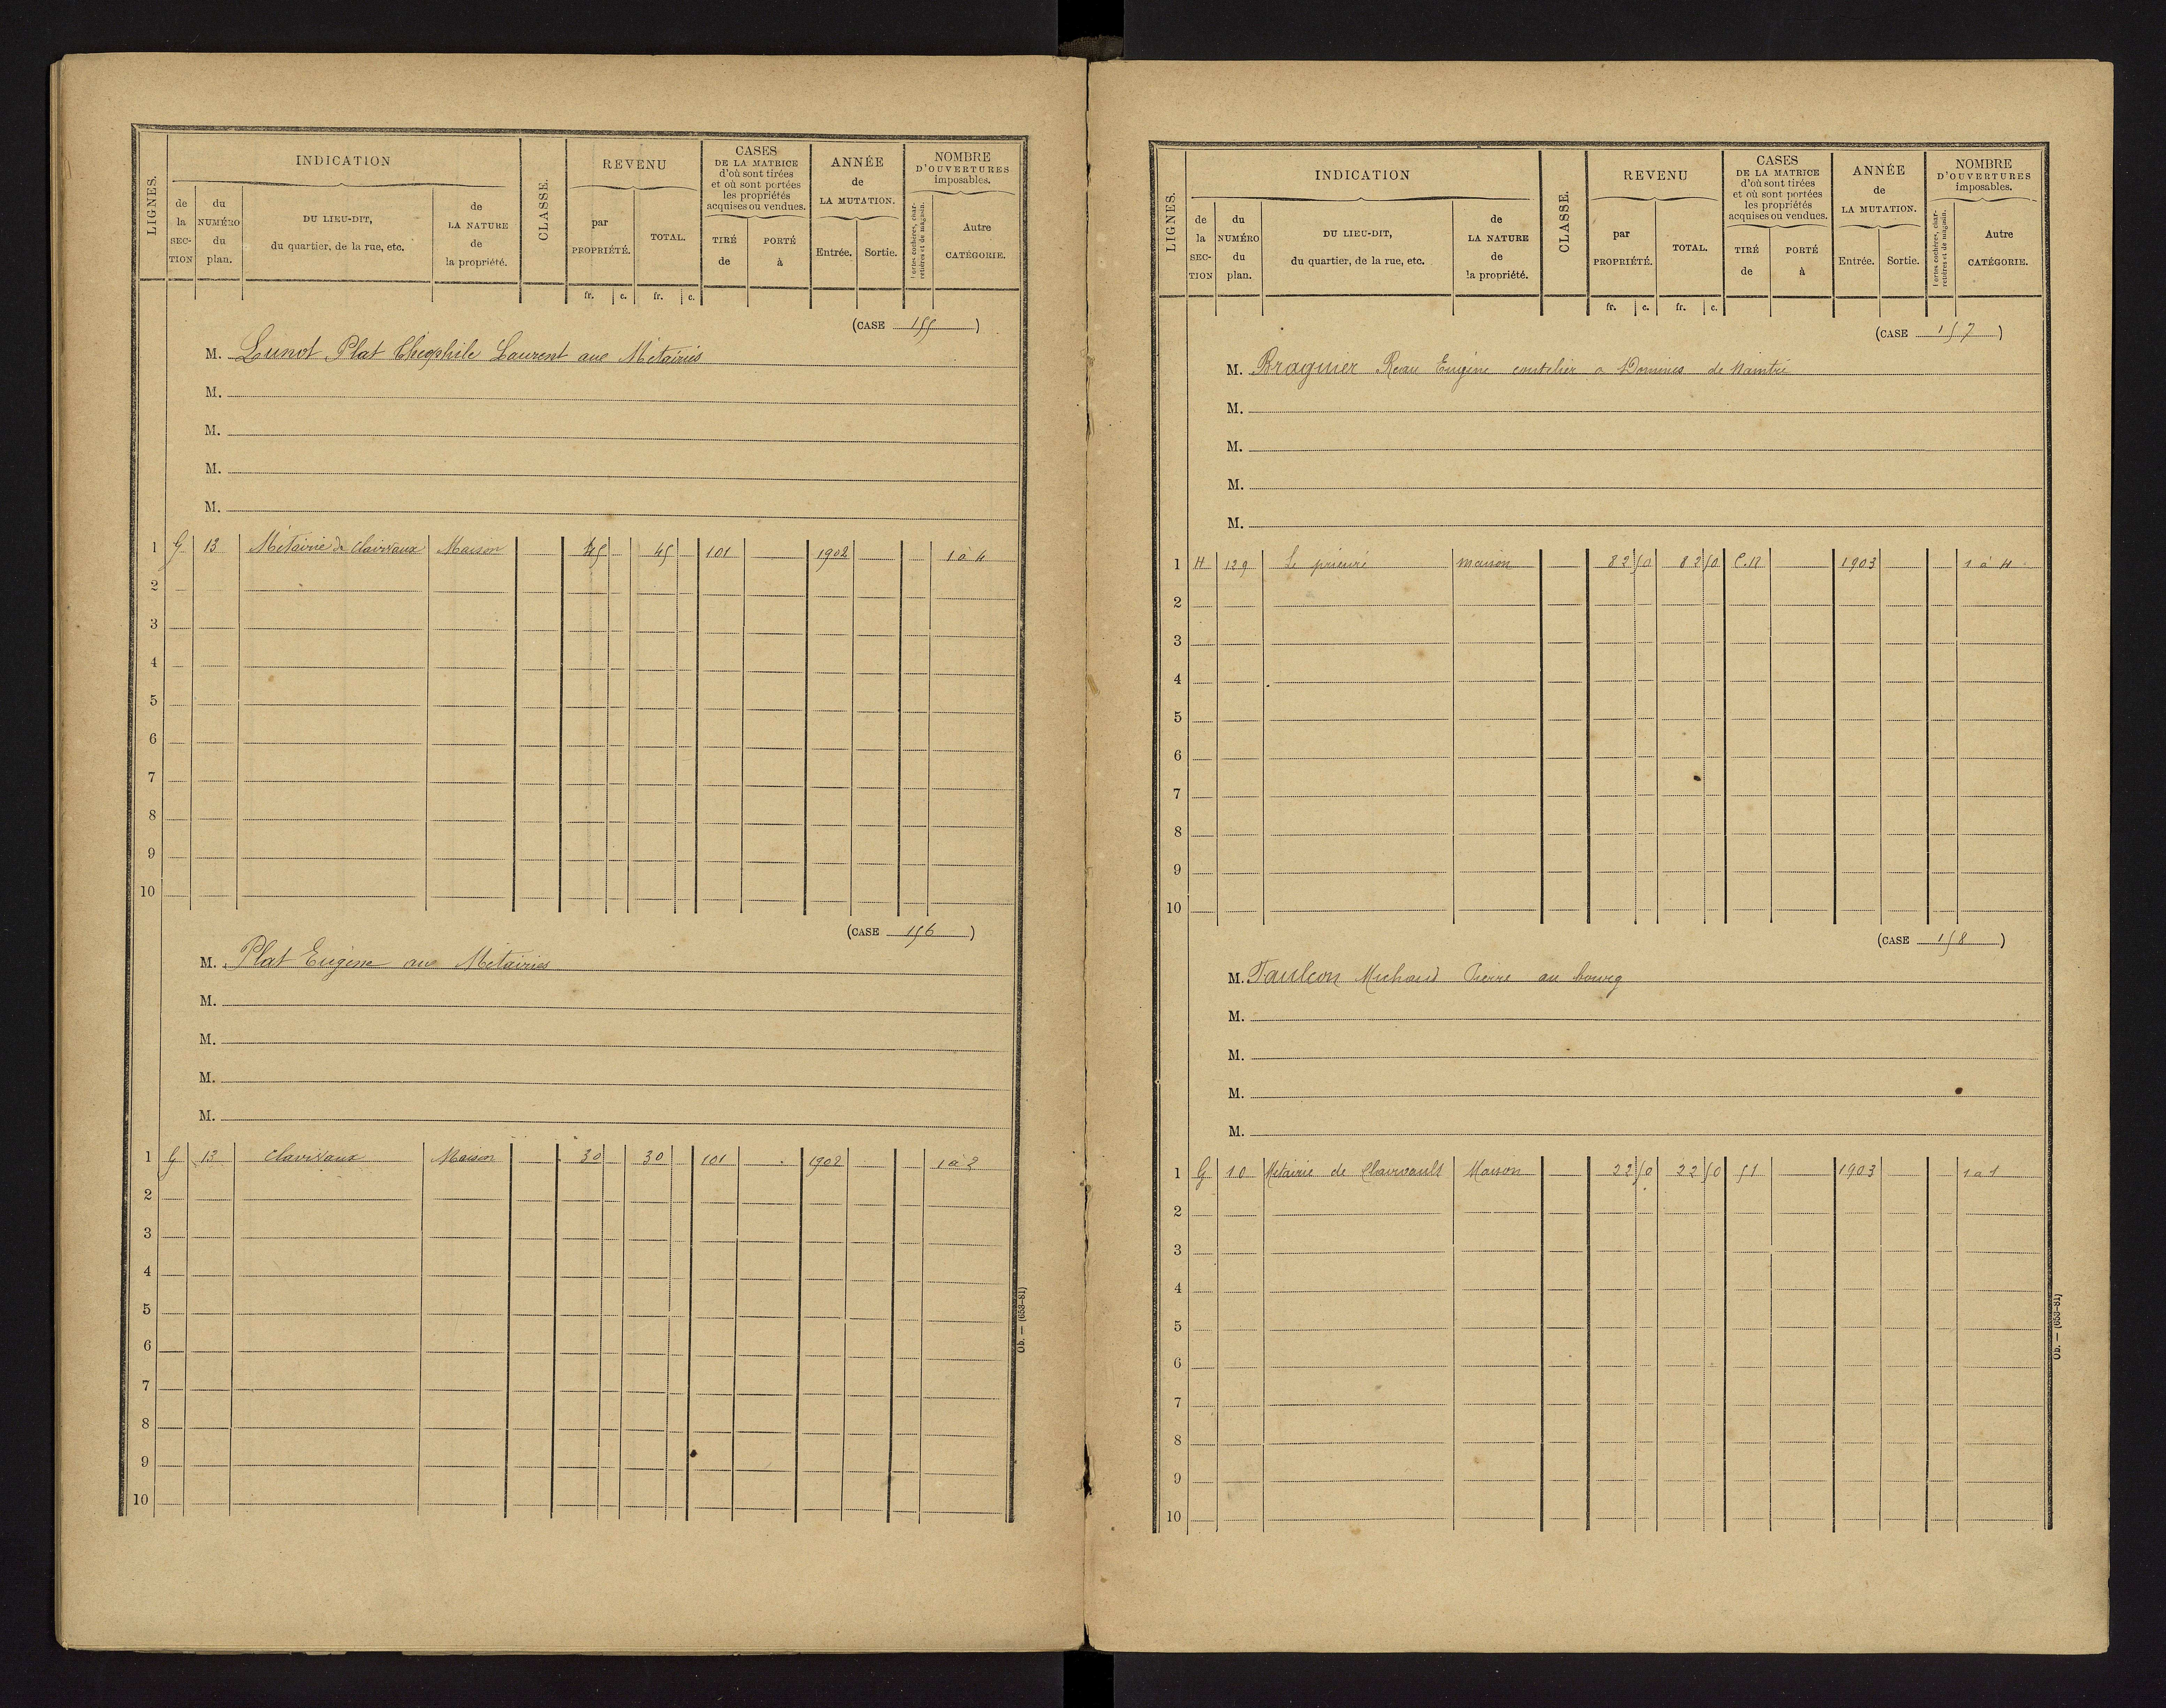 LIGNES.
INDICATION
de la SECTION
du NUMÉRO du plan.
DU LIEU-DIT, du quartier, de la rue, etc.
de LA NATURE de la propriété.
CLASSE.
REVENU
par PROPRIÉTÉ.
TOTAL.
CASES DE LA MATRICE d'où sont tirées et où sont portées les propriétés acquises ou vendues.
TIRÉ de
PORTÉ à
ANNÉE de LA MUTATION.
Entrée.
Sortie.
NOMBRE D'OUVERTURES imposables.
Portes cochères, charretières et de magasin.
Autre CATÉGORIE.
fr. c. fr. c.
(CASE 155)
M. Lunot Plat Théophile Laurent aux Métairies
M.
M.
M.
M.
1 G 13 Métairie de Clairvaux Maison 45 45 101 1902 1 à 4
2
3
4
5
6
7
8
9
10
(CASE 156)
M. Plat Eugène aux Métairies
M.
M.
M.
M.
1 G 13 Clairvaux Maison 30 30 101 1902 1 à 2
2
3
4
5
6
7
8
9
10
Ob. — (653-81)
LIGNES.
INDICATION
de la SECTION
du NUMÉRO du plan.
DU LIEU-DIT, du quartier, de la rue, etc.
de LA NATURE de la propriété.
CLASSE.
REVENU
par PROPRIÉTÉ.
TOTAL.
CASES DE LA MATRICE d'où sont tirées et où sont portées les propriétés acquises ou vendues.
TIRÉ de
PORTÉ à
ANNÉE de LA MUTATION.
Entrée.
Sortie.
NOMBRE D'OUVERTURES imposables.
Portes cochères, charretières et de magasin.
Autre CATÉGORIE.
fr. c. fr. c.
(CASE 157)
M. Braguier Reau Eugène coutelier a Domines de Naintré
M.
M.
M.
M.
1 H 129 Le prieuré maison 82 50 82 50 C.N 1903 1 à 4
2
3
4
5
6
7
8
9
10
(CASE 158)
M. Faulcon Michaud Pierre au bourg
M.
M.
M.
M.
1 G 10 Métairie de Clairvault Maison 22 50 22 50 51 1903 1 a 1
2
3
4
5
6
7
8
9
10
Ob. — (653-81)